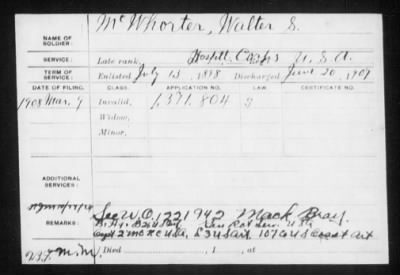 McWhorter, Walter S.
NAME OF SOLDIER:
SERVICE: Late rank, Hospital Corps U.S.A.
TERM OF SERVICE: Enlisted July 13, 1898 Discharged June 20, 1907
DATE OF FILING. CLASS. APPLICATION NO. LAW.
1908 Mar. 9 Invalid, 1,371,804
Widow,
Minor,
ADDITIONAL SERVICES:
See W.O. 1221942 Mack Bray.
REMARKS:
107 Co U S Coast Art
Died , 1 , at